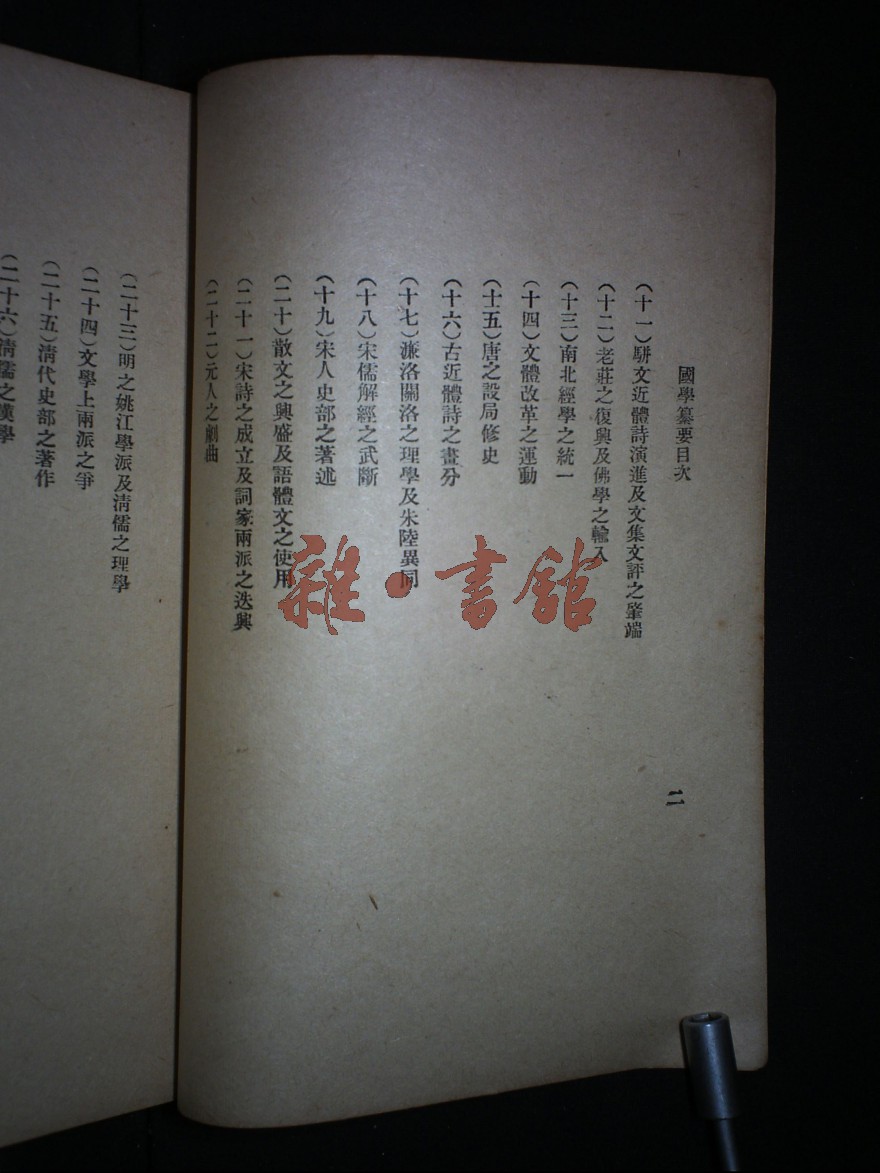 國學纂要目次
二
(十一)駢文近體詩演進及文集文評之肇端
(十二)老莊之復興及佛學之輸入
(十三)南北經學之統一
(十四)文體改革之運動
(十五)唐之設局修史
(十六)古近體詩之畫分
(十七)濂洛關洛之理學及朱陸異同
(十八)宋儒解經之武斷
(十九)宋人史部之著述
(二十)散文之興盛及語體文之使用
(二十一)宋詩之成立及詞家兩派之迭興
(二十二)元人之劇曲
(二十三)明之姚江學派及清儒之理學
(二十四)文學上兩派之爭
(二十五)清代史部之著作
(二十六)清儒之漢學
雜·書館